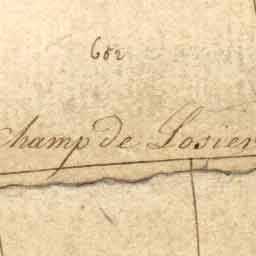 602
champ de Losier